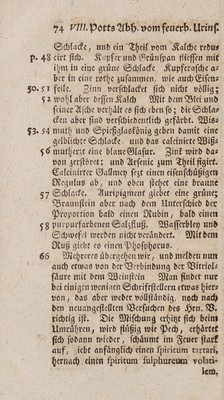 74 VIII. Potts Abh. vom feuerb. Urins.
Schlacke, und ein Theil vom Kalche redus
p. 48 cirt sich. Kupfer und Grünspan fliessen mit
ihm in eine grüne Schlacke Kupferasche a-
ber in eine rothe zusammen, wie auch Eisen
50. 51 feile. Zinn verschlacket sich nicht völlig;
52 wohl aber dessen Kalch Mit dem Blei und
seiner Asche verhält es sich eben so; die Schla-
cken aber sind verschiedentlich gefärbt. Wis-
53. 54 muth und Spiesglaskönig geben damit eine
gelblichte Schlacke. und das calcinirte Wis-
55 muthertz eine blaue Glasur. Zink wird da-
von zerstöret: und Arsenic zum Theil figirt.
Calcinirter Gallmey setzt einen eisenschüßigen
Regulus ab, und oben stehet eine braune
57 Schlacke. Auripigment giebet eine grüne;
Braunstein aber nach dem Unterschied der
Proportion bald einen Rubin, bald einen
58 purpurfarbenen Salzfluß. Wasserbley und
Schwefel werden nicht verändert. Mit dem
Ruß giebt es einen Phosphorus.
66 Mehreres übergehen wir, und melden nun
auch etwas von der Verbindung der Vitriol-
säure mit dem Weinstein Man findet nur
bei einigen wenigen Schriftstellern etwas hier-
von, das aber weder vollständig, noch nach
den neuangestellten Versuchen des Hrn. V.
richtig ist. Die Mischung erhitzt sich beim
Umrühren, wird flüßig wie Pech, erhärtet
sich sodann wieder, schäumt im Feuer stark
auf, iebt anfänglich einen spiritum tartari,
hernach einen spiritum sulphureum volati-
lem,